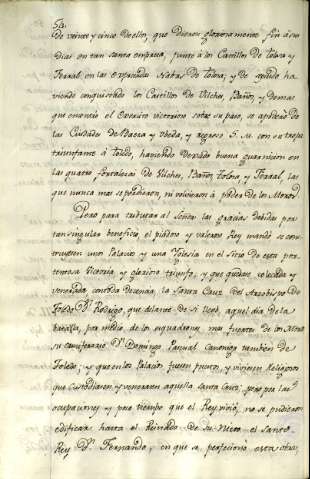 de veinte y cinco de ellos, que dieron gloriosamente fin à sus
dias en tan santa empresa, junto à los Castillos de Tolosa y
Ferral, en las expresadas Nabas de Tolosa; y de aquido ha-
viendo conquistado los Castillos de Vilches, Baños, y demas
que encontró el Exercito victorioso sobre su paso, se apoderó de
las Ciudades de Baeza y Ubeda, y regresó S. M. con su tropa
triunfante à Toledo, haviendo dexado buena guarnicion en
las quatro fortalezas de Vilches, Baños, Tolosa, y Ferral, las
que nunca mas se perdieron, ni volvieron à poder de los Moros.
Pero para tributar al Señor las gracias debidas por
tan singular beneficio, el piadoso y valeroso Rey mandó se cons-
truyesen uno Palacio y una Yglesia en el sitio de esta por-
tentosa Victoria y glorioso triunfo, y que quedase colocada y
venerada con toda decencia la Santa Cruz del Arzobispo de
Toledo Dn. Rodrigo, que delante de si llevó, aquel dia de la
batalla, por medio de los esquadrones mas fuertes de los Moros
su camarero Dn. Domingo Pasqual Canonigo tambien de
Toledo; y que en los Palacios fuesen puestos, y viviesen Religiosos
que custodiasen y venerasen aquella Santa Cruz; pero por las
ocupaciones y poco tiempo que el Rey vivió, no se pudieron
edificar hasta el Reinado de su Nieto el Santo
Rey Dn. Fernando, en que se perfeccionó esta obra,